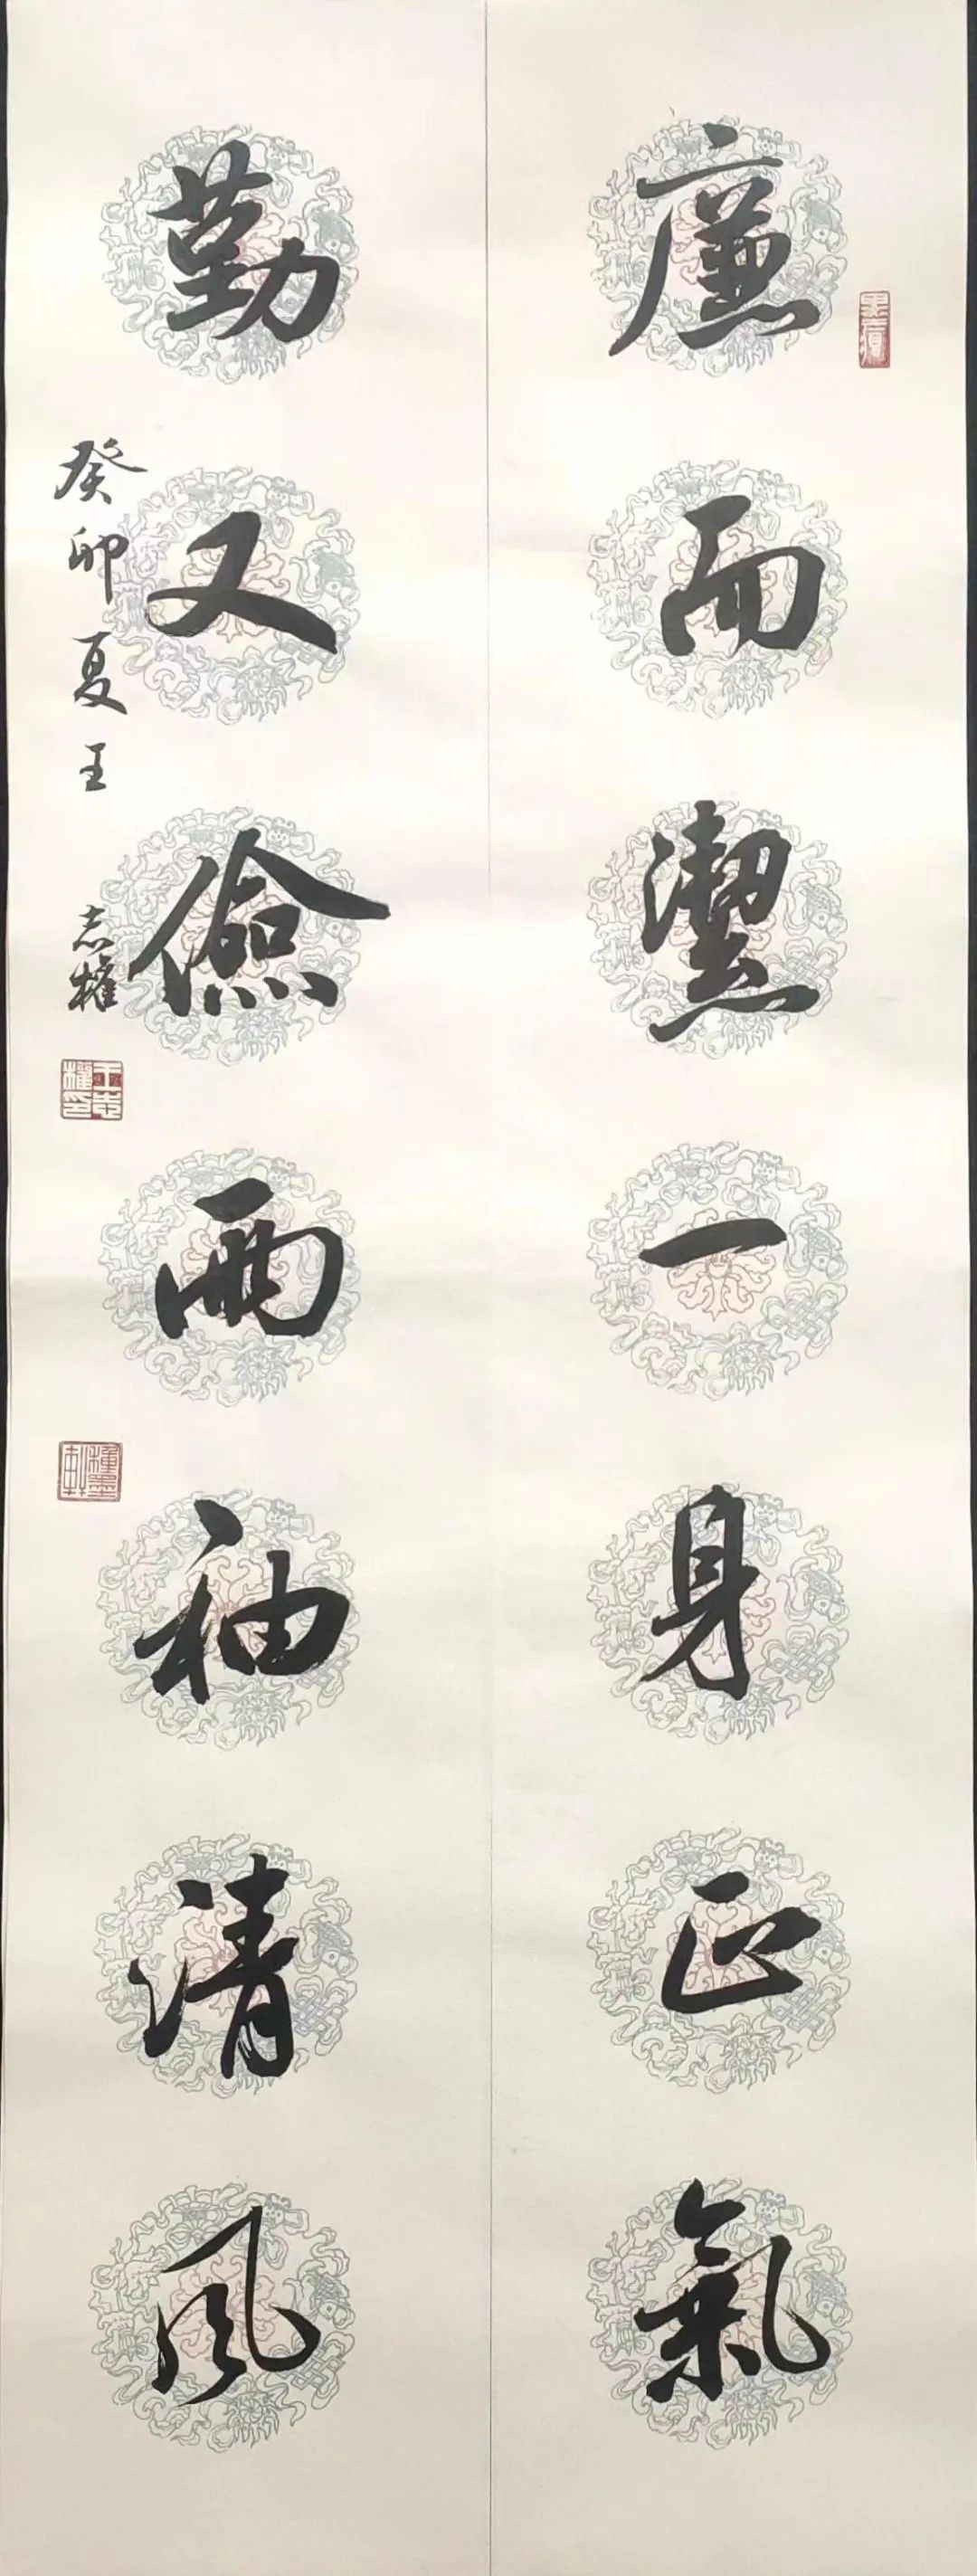 廉而潔一身正氣
勤又儉兩袖清風
癸卯夏王志權
王志權印
種墨軒